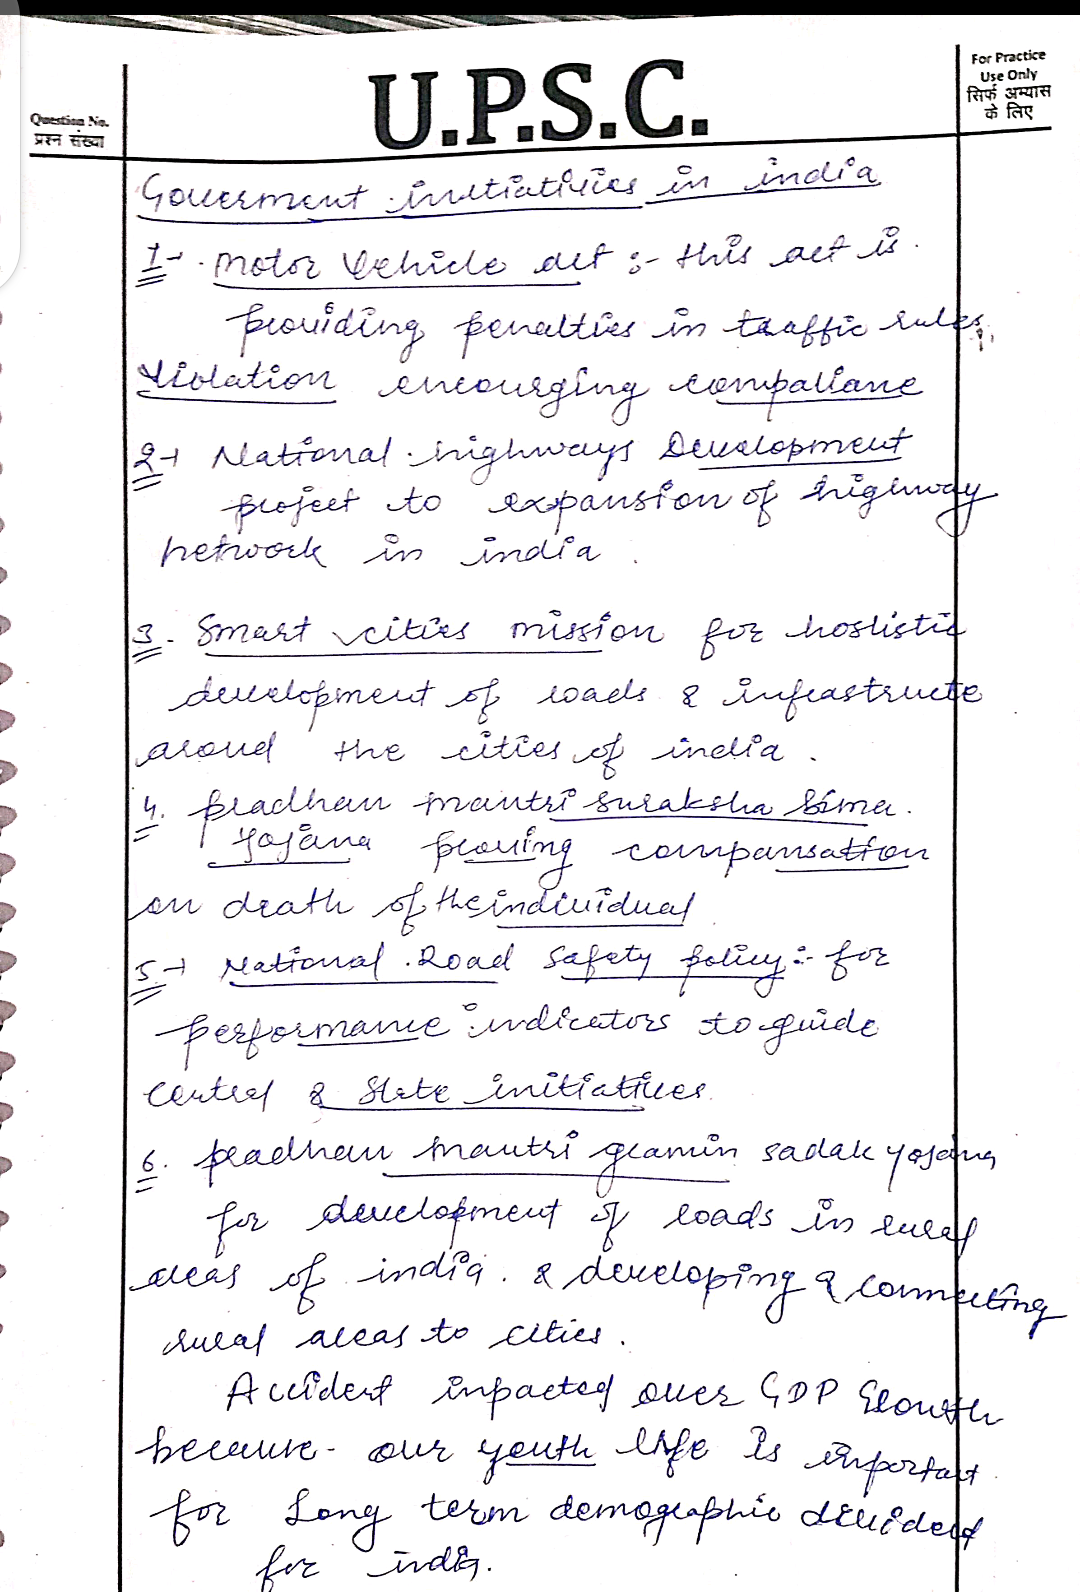 Question No.
प्रश्न संख्या
U.P.S.C.
For Practice
Use Only
सिर्फ अभ्यास
के लिए
Goverment initiativies in india
1→ motor Vehicle act :- this act is
providing penalties in traffic rules,
Violation encourging compaliane
2→ National highways Development
project to expansion of highway
network in india.
3. Smart cities mission for hoslistic
development of roads & infrastructe
aroud the cities of india.
4. pradhan mantri suraksha bima.
Yojana proving compansation
on death of the individual
5→ National Road safety policy :- for
performance indicators to guide
central & state initiatives.
6. pradhan mantri gramin sadak yojana
for development of roads in rural
areas of india. & developing & connecting
rural areas to cities.
Accident impacted over GDP Growth
because our youth life is important
for Long term demographic dividend
for india.